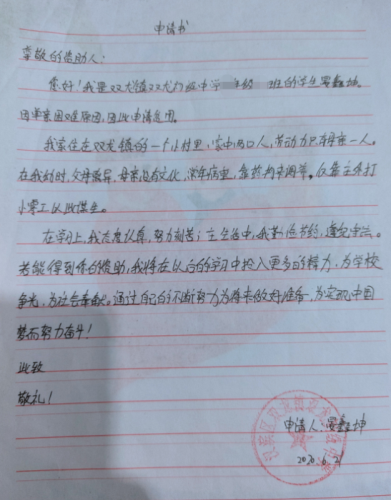 申请书
尊敬的资助人：
您好！我是双龙镇双龙九年制中学 年级 班的学生罗鑫坤。
因单亲困难原因，因此申请费用。
我家住在双龙镇的一个小村里，家中两口人，劳动力只有母亲一人。
在我幼时，父母离异，母亲没有文化，常年病重，靠药物来调养。仅靠平务打
小零工以此谋生。
在学习上，我态度认真，努力刻苦；在生活中，我勤俭节约，遵纪守法。
若能得到你的资助，我将在以后的学习中投入更多的精力，为学校
争光，为社会奉献。通过自己的不断努力为将来做好准备，为实现中国
梦而努力奋斗！
此致
敬礼！
申请人：罗鑫坤
2020.6.